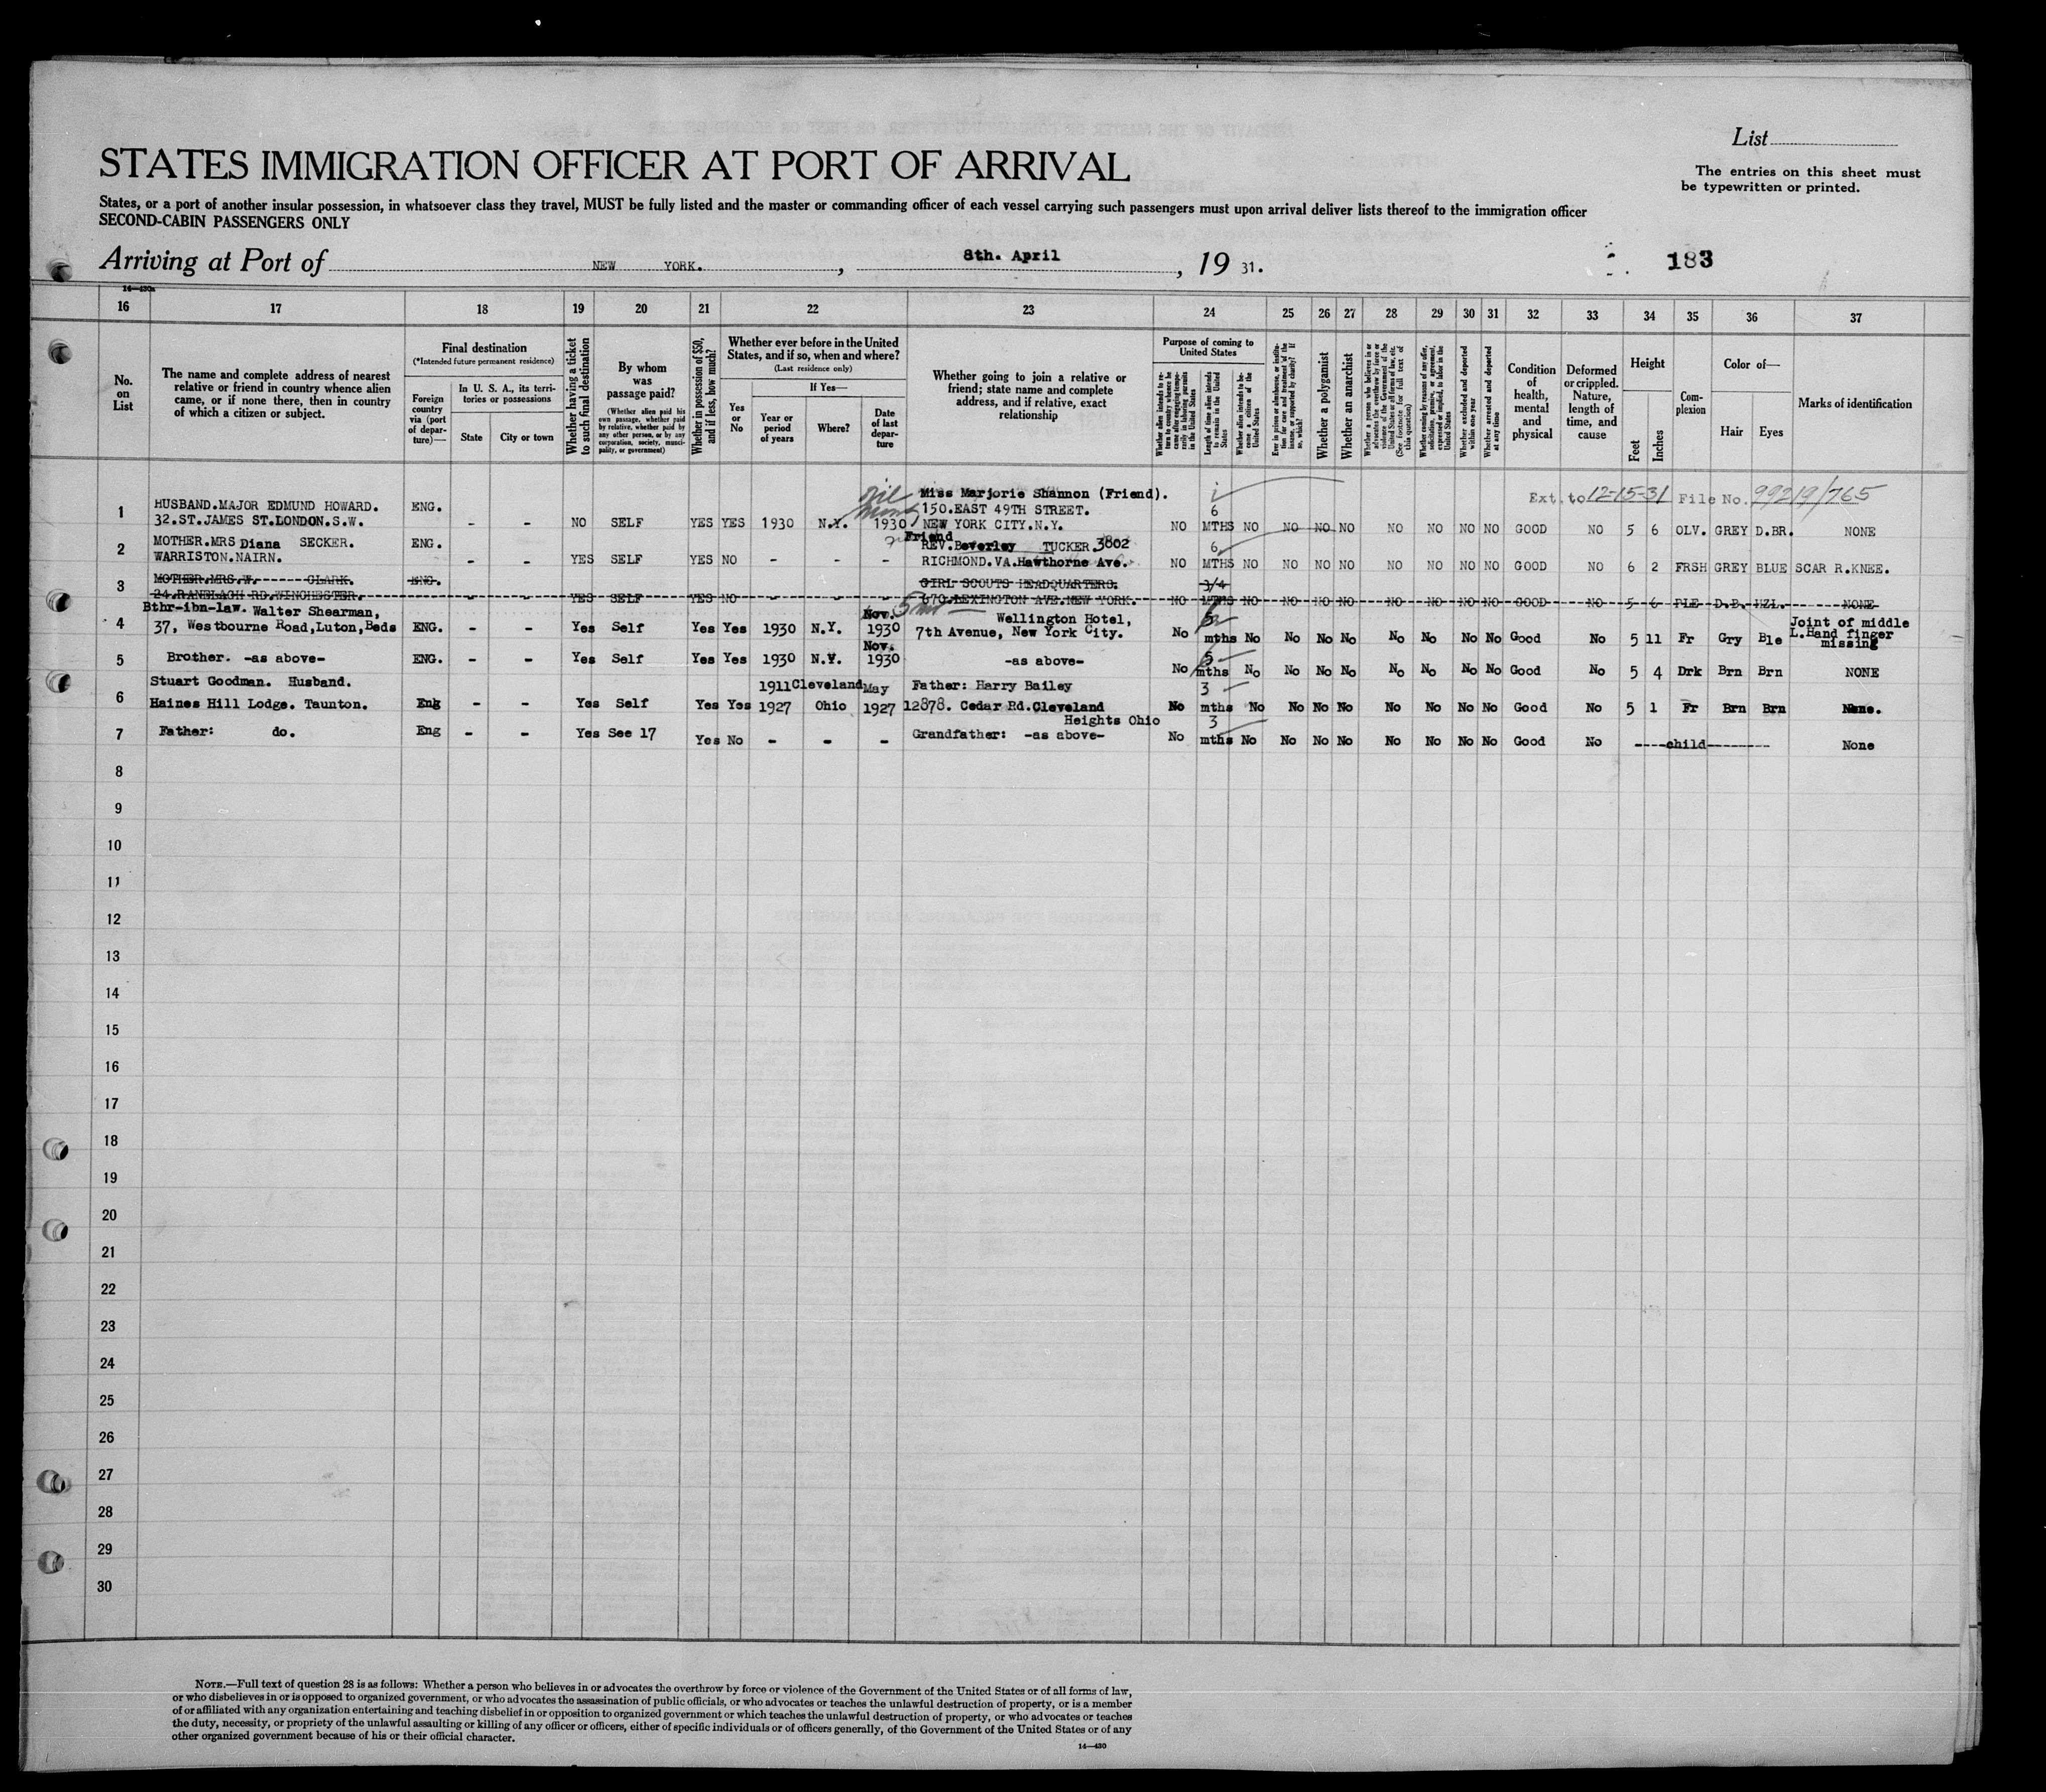 List
The entries on this sheet must
be typewritten or printed.
STATES IMMIGRATION OFFICER AT PORT OF ARRIVAL
States, or a port of another insular possession, in whatsoever class they travel, MUST be fully listed and the master or commanding officer of each vessel carrying such passengers must upon arrival deliver lists thereof to the immigration officer
SECOND-CABIN PASSENGERS ONLY
Arriving at Port of NEW YORK. , 8th. April , 19 31. 183
14—430a
16 17 18 19 20 21 22 23 24 25 26 27 28 29 30 31 32 33 34 35 36 37
No. on List
The name and complete address of nearest
relative or friend in country whence alien
came, or if none there, then in country
of which a citizen or subject.
Final destination
(*Intended future permanent residence)
Foreign
country
via (port
of depar-
ture)—
In U. S. A., its terri-
tories or possessions
State City or town
Whether having a ticket
to such final destination
By whom
was
passage paid?
(Whether alien paid his
own passage, whether paid
by relative, whether paid by
any other person, or by any
corporation, society, munici-
pality, or government)
Whether in possession of $50,
and if less, how much?
Whether ever before in the United
States, and if so, when and where?
(Last residence only)
Yes
or
No
If Yes—
Year or
period
of years
Where?
Date
of last
depar-
ture
Whether going to join a relative or
friend; state name and complete
address, and if relative, exact
relationship
Purpose of coming to
United States
Whether alien intends to re-
turn to country whence he
came after engaging tempo-
rarily in laboring pursuits
in the United States
Length of time alien intends
to remain in the United
States
Whether alien intends to be-
come a citizen of the
United States
Ever in prison or almshouse, or institu-
tion for care and treatment of the
insane, or supported by charity? If
so, which?
Whether a polygamist
Whether an anarchist
Whether a person who believes in or
advocates the overthrow by force or
violence of the Government of the
United States or all forms of law, etc.
(See footnote for full text of
this question)
Whether coming by reason of any offer,
solicitation, promise, or agreement,
expressed or implied, to labor in the
United States
Whether excluded and deported
within one year
Whether arrested and deported
at any time
Condition
of
health,
mental
and
physical
Deformed
or crippled.
Nature,
length of
time, and
cause
Height
Feet Inches
Com-
plexion
Color of—
Hair Eyes
Marks of identification
Ext. to 12-15-31 File No. 99219/765
1 HUSBAND.MAJOR EDMUND HOWARD. ENG. Miss Marjorie Shannon (Friend).
150.EAST 49TH STREET. 6
32.ST.JAMES ST.LONDON.S.W. - - NO SELF YES YES 1930 N.Y. 1930 NEW YORK CITY.N.Y. NO MTHS NO NO NO NO NO NO NO NO GOOD NO 5 6 OLV. GREY D.BR. NONE
Friend
2 MOTHER.MRS Diana SECKER. ENG. REV.Beverley TUCKER.3802 6
WARRISTON.NAIRN. - - YES SELF YES NO - - - RICHMOND.VA.Hawthorne Ave. NO MTHS NO NO NO NO NO NO NO NO GOOD NO 6 2 FRSH GREY BLUE SCAR R.KNEE.
3 MOTHER.MRS.W. CLARK. ENG. GIRL SCOUTS HEADQUARTERS. 3/4
24.RANELAGH RD.WINCHESTER. - - YES SELF YES NO - - - 670.LEXINGTON AVE.NEW YORK. NO MTHS NO NO NO NO NO NO NO NO GOOD NO 5 6 PLE D.B. HZL. NONE
4 Bthr-ibn-law. Walter Shearman, Nov. Wellington Hotel, Joint of middle
37, Westbourne Road,Luton,Beds ENG. - - Yes Self Yes Yes 1930 N.Y. 1930 7th Avenue, New York City. No mths No No No No No No No No Good No 5 11 Fr Gry Ble L.Hand finger
missing
5 Brother. -as above- ENG. - - Yes Self Yes Yes 1930 N.Y. Nov. 1930 -as above- No 5 mths No No No No No No No No Good No 5 4 Drk Brn Brn NONE
6 Stuart Goodman. Husband. 1911 Cleveland May Father: Harry Bailey 3
Haines Hill Lodge. Taunton. Eng - - Yes Self Yes Yes 1927 Ohio 1927 12878. Cedar Rd.Cleveland No mths No No No No No No No No Good No 5 1 Fr Brn Brn None.
Heights Ohio
7 Father: do. Eng - - Yes See 17 Yes No - - - Grandfather: -as above- No 3 mths No No No No No No No No Good No ----child------- None
8
9
10
11
12
13
14
15
16
17
18
19
20
21
22
23
24
25
26
27
28
29
30
NOTE.—Full text of question 28 is as follows: Whether a person who believes in or advocates the overthrow by force or violence of the Government of the United States or of all forms of law,
or who disbelieves in or is opposed to organized government, or who advocates the assassination of public officials, or who advocates or teaches the unlawful destruction of property, or is a member
of or affiliated with any organization entertaining and teaching disbelief in or opposition to organized government or which teaches the unlawful destruction of property, or who advocates or teaches
the duty, necessity, or propriety of the unlawful assaulting or killing of any officer or officers, either of specific individuals or of officers generally, of the Government of the United States or of any
other organized government because of his or their official character.
14—430